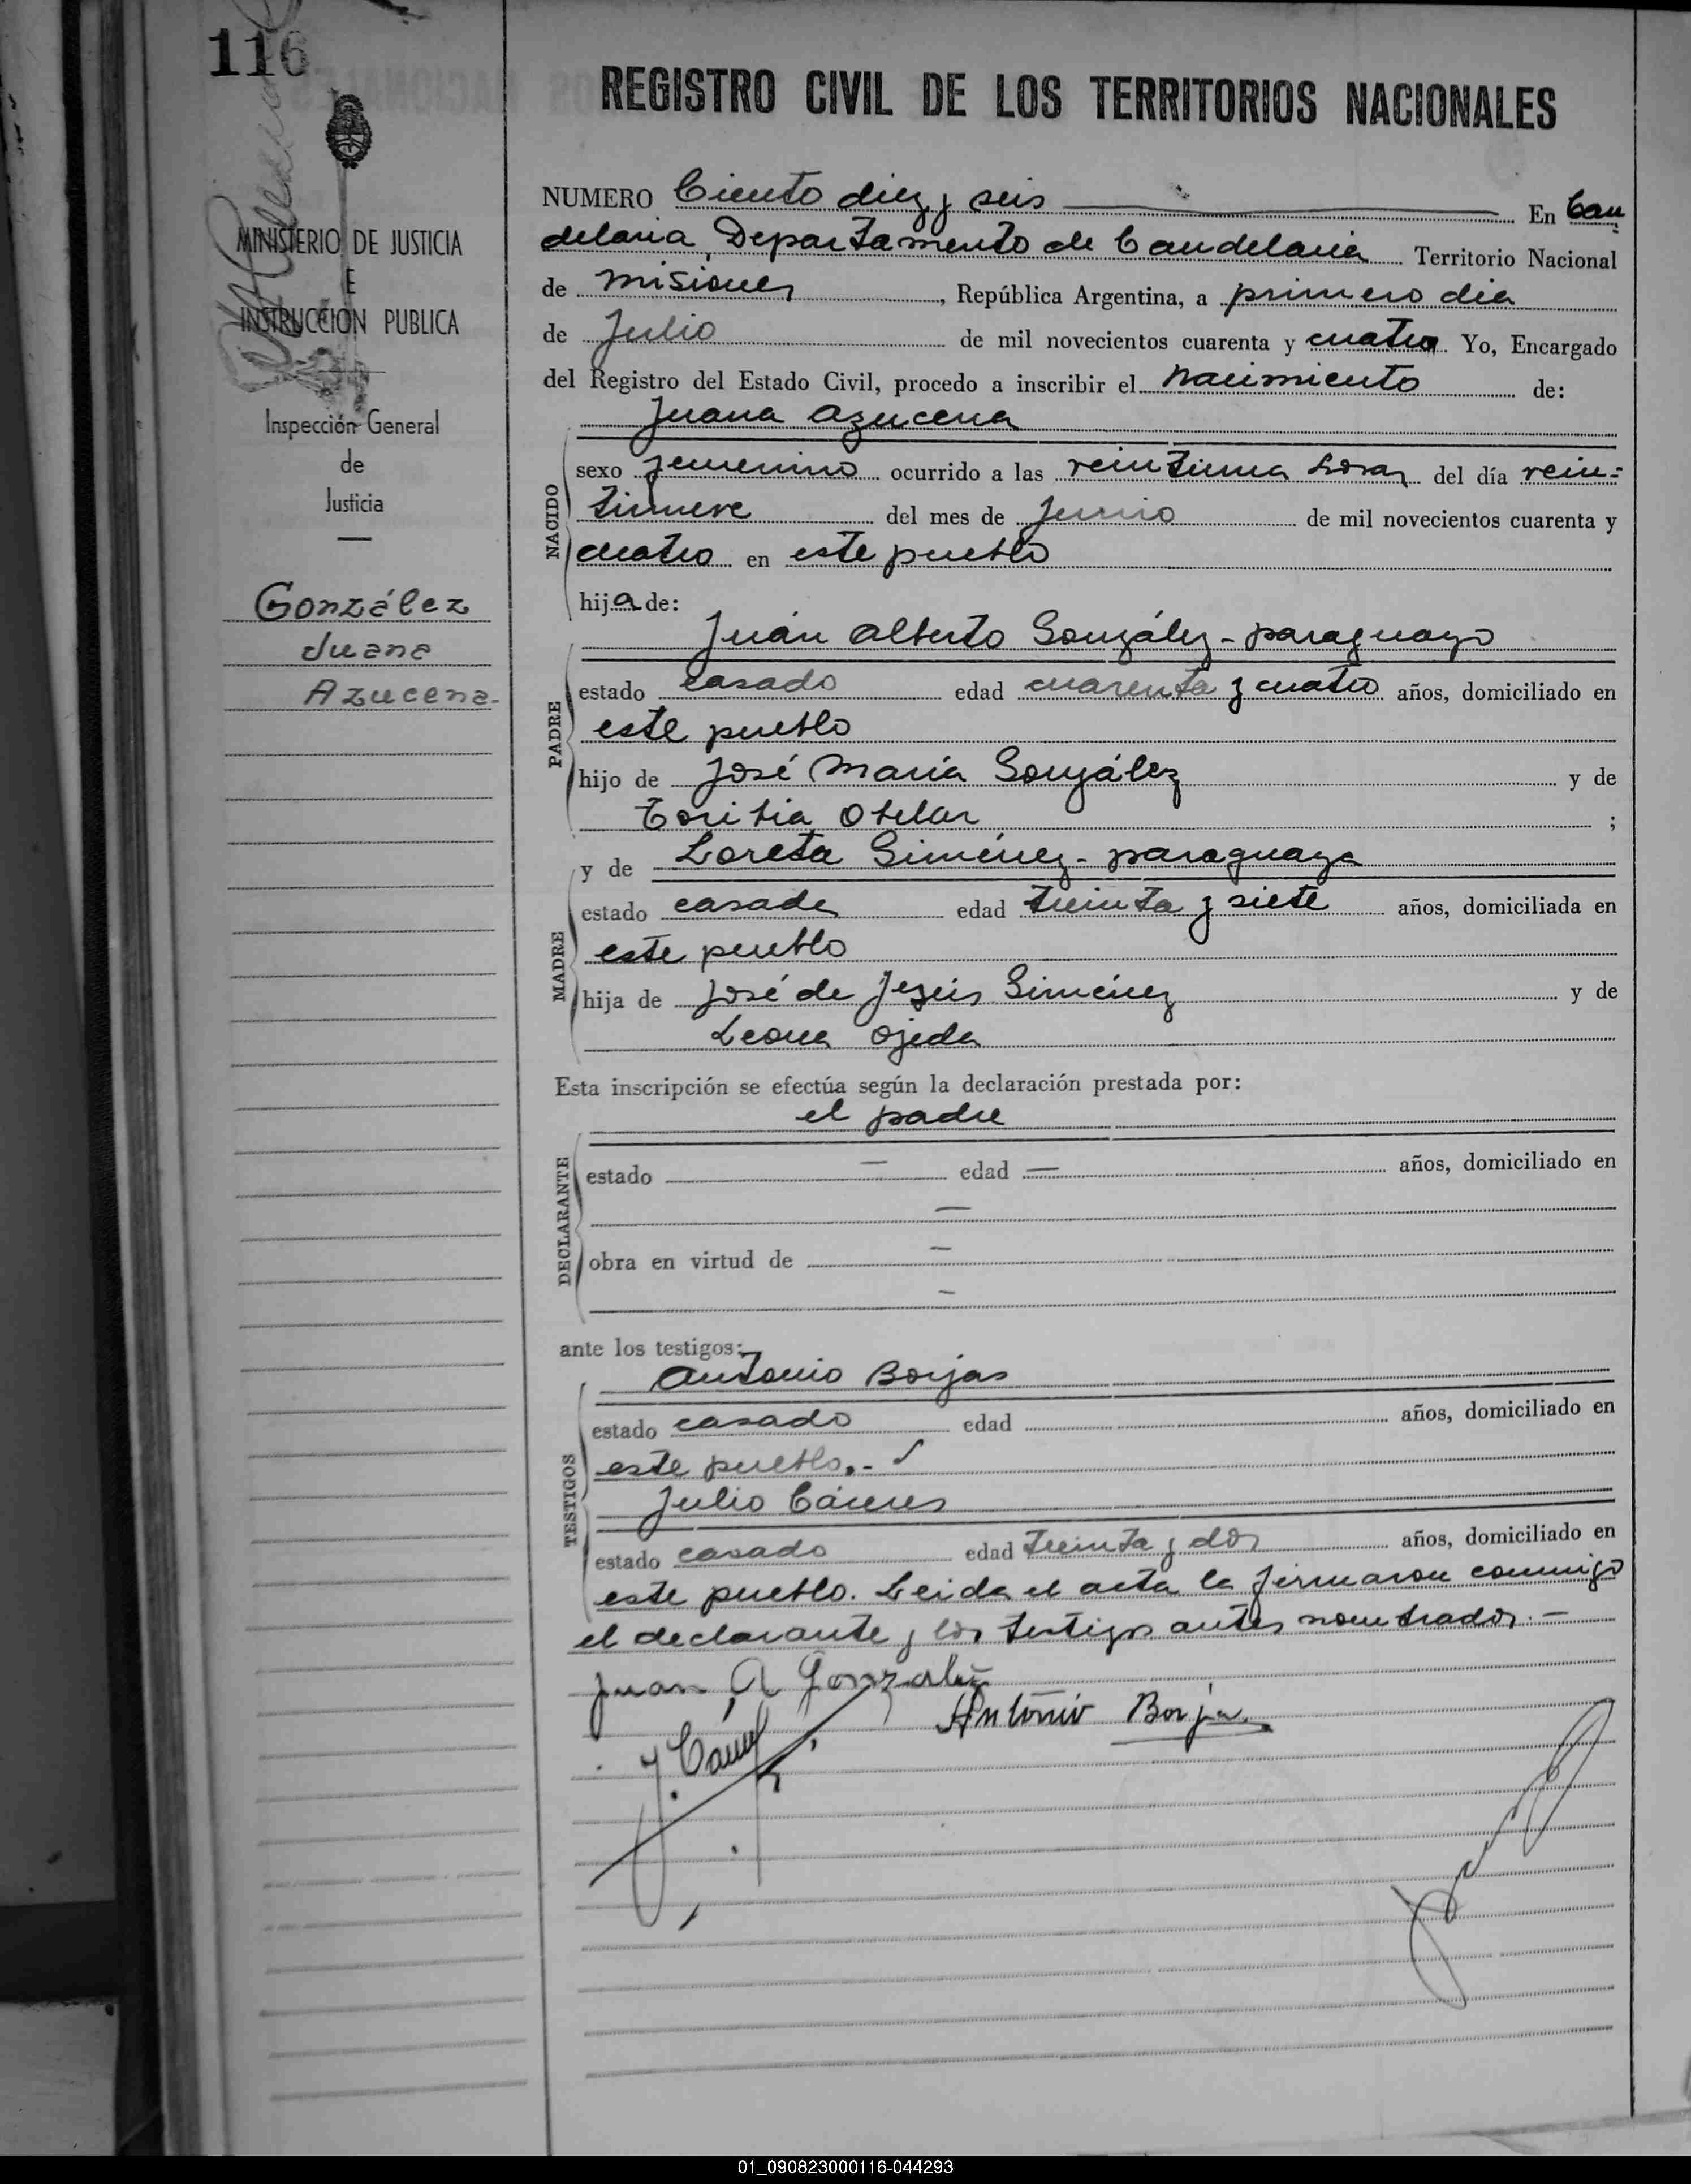 116
REGISTRO CIVIL DE LOS TERRITORIOS NACIONALES
MINISTERIO DE JUSTICIA
E
INSTRUCCION PUBLICA
Inspección General
de
Justicia
González
Juana
Azucena.-
NUMERO Ciento diez y seis En Can
delaria, Departamento de Candelaria Territorio Nacional
de Misiones, República Argentina, a primero dia
de Julio de mil novecientos cuarenta y cuatro Yo, Encargado
del Registro del Estado Civil, procedo a inscribir el nacimiento de:
Juana Azucena
NACIDO
sexo femenino ocurrido a las veintiuna horas del día vein-
tinueve del mes de Junio de mil novecientos cuarenta y
cuatro en este pueblo
hija de:
Juán Alberto González - paraguayo
PADRE
estado casado edad cuarenta y cuatro años, domiciliado en
este pueblo
hijo de José María González y de
Toribia ;
y de Loreta Giménez - paraguaya
MADRE
estado casada edad treinta y siete años, domiciliada en
este pueblo
hija de José de Jesús Giménez y de
Leona Ojeda
Esta inscripción se efectúa según la declaración prestada por:
el padre
DECLARANTE
estado — edad — años, domiciliado en
—
obra en virtud de —
—
ante los testigos:
Antonio Borjas
TESTIGOS
estado casado edad años, domiciliado en
este pueblo.-
Julio Cáceres
estado casado edad treinta y dos años, domiciliado en
este pueblo. Leida el acta la firmaron conmigo
el declarante y los testigos antes nombrados.-
Juan A Gonzalez
Antonio Borja
J. Cáceres
01_090823000116-044293